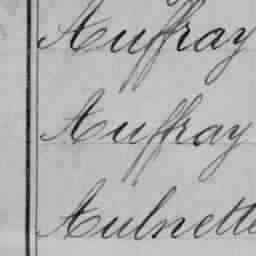 Auffray
Auffray
Aulnette